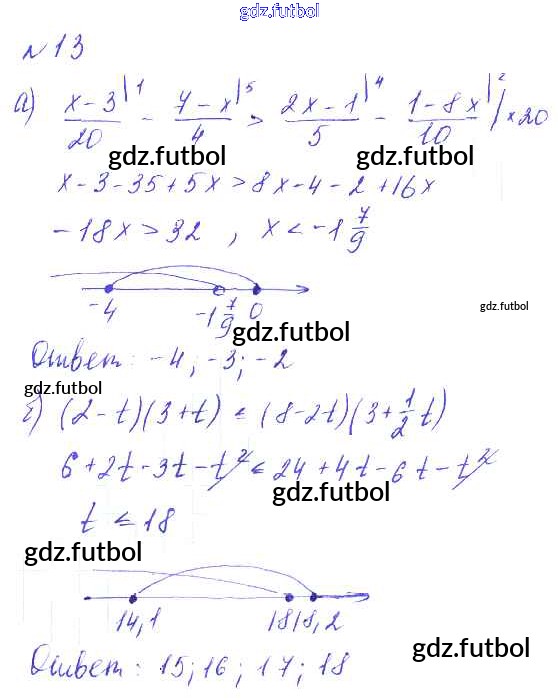 gdz.futbol
№13
а) (x-3)/20 |1 - (7-x)/4 |5 > (2x-1)/5 |4 - (1-8x)/10 |2 / ×20
gdz.futbol gdz.futbol
x-3-35+5x>8x-4-2+16x
-18x>32, x<-1 7/9
-4 -1 7/9 0
gdz.futbol
gdz.futbol
Ответ: -4; -3; -2
gdz.futbol
б) (2-t)(3+t) ≤ (8-2t)(3+1/2 t)
6+2t-3t-t² ≤ 24+4t-6t-t²
gdz.futbol
t ≤ 18
gdz.futbol
14,1 18 18,2
gdz.futbol
Ответ: 15; 16; 17; 18